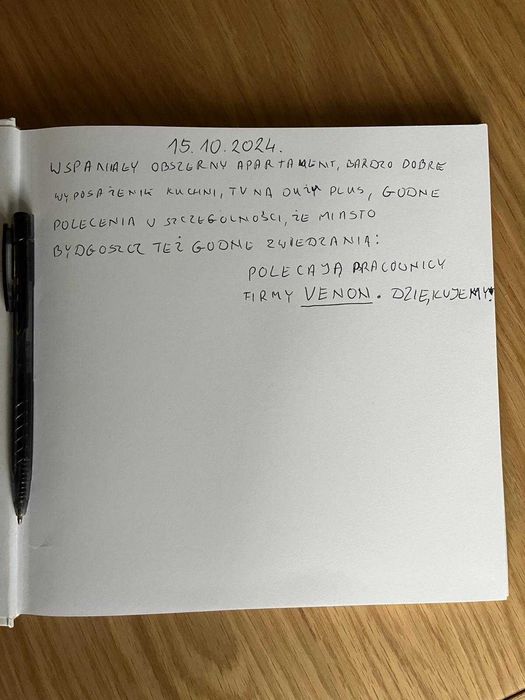 15.10.2024.
WSPANIAŁY OBSZERNY APARTAMENT, BARDZO DOBRE
WYPOSAŻENIE KUCHNI, TV NA DUŻY PLUS, GODNE
POLECENIA W SZCZEGÓLNOŚCI, ŻE MIASTO
BYDGOSZCZ TEŻ GODNE ZWIEDZANIA:
POLECAJĄ PRACOWNICY
FIRMY VENON. DZIĘKUJEMY!